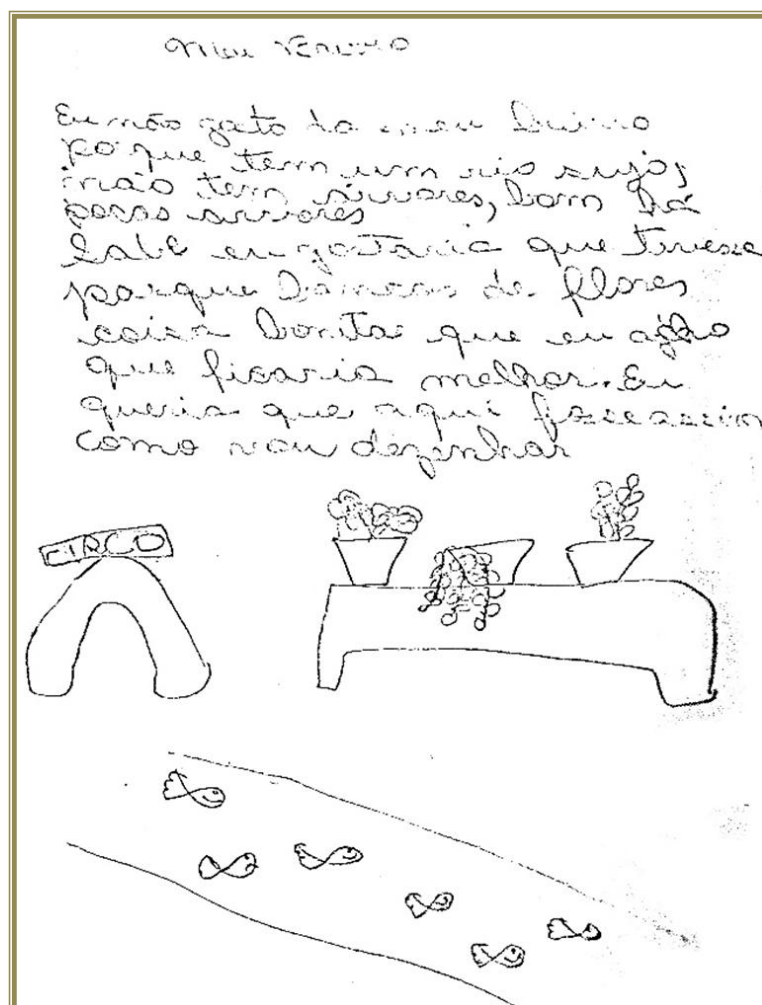 Meu
Eu não goto do meu bairro
po que tem um rio sujo,
não tem árvores, bom há
pocas arvores
Sabe eu gostaria que tivese
parque bancos de flores
coisa bonitas que eu acho
que ficaria melhor. Eu
queria que aqui
como vou dezenhar
CIRCO